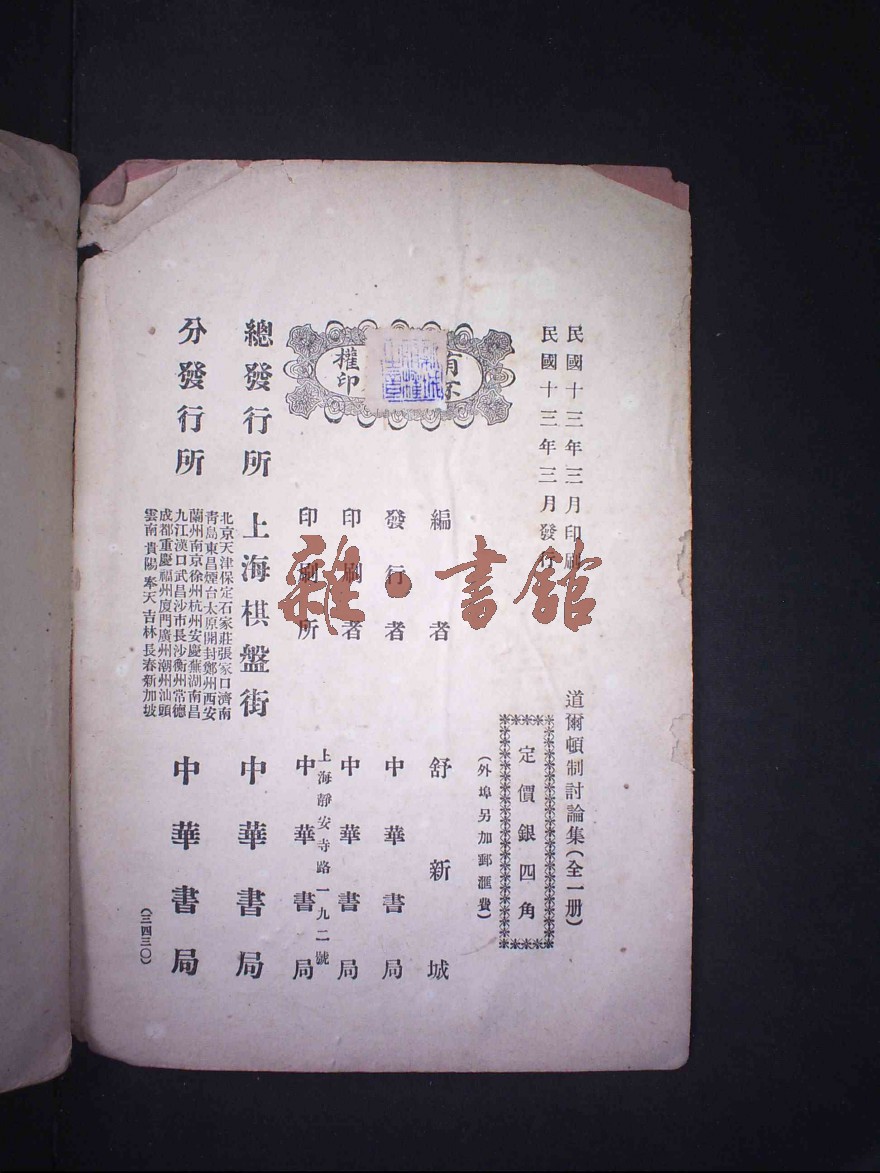 民國十三年三月印刷
民國十三年三月發行
道爾頓制討論集(全一册)
定價銀四角
(外埠另加郵滙費)
有不
權印
編者 舒新城
發行者 中華書局
印刷者 中華書局
上海靜安寺路一九二號
印刷所 中華書局
總發行所 上海棋盤街 中華書局
北京天津保定石家莊張家口濟南
青島東昌煙台太原開封鄭州西安
蘭州南京徐州杭州安慶蕪湖南昌
九江漢口武昌沙市長沙衡州常德
成都重慶福州廈門廣州潮州汕頭
雲南貴陽奉天吉林長春新加坡
分發行所 中華書局
(三四三〇)
雜·書館